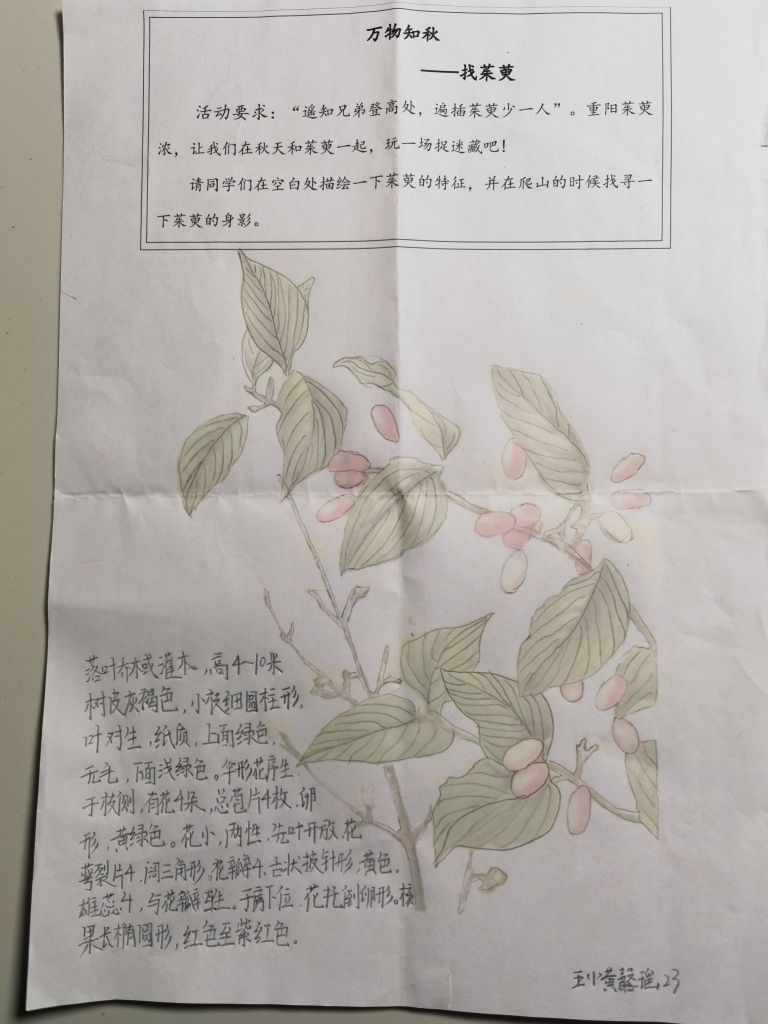 万物知秋
——找茱萸
活动要求：“遥知兄弟登高处，遍插茱萸少一人”。重阳茱萸
浓，让我们在秋天和茱萸一起，玩一场捉迷藏吧！
请同学们在空白处描绘一下茱萸的特征，并在爬山的时候找寻一
下茱萸的身影。
落叶乔木或灌木，高4~10米
树皮灰褐色，小枝细圆柱形。
叶对生，纸质，上面绿色，
无毛，下面浅绿色。伞形花序生
于枝侧，有花4朵，总苞片4枚，卵
形，黄绿色。花小，两性，先叶开放，花
萼裂片4，阔三角形，花瓣4，舌状披针形，黄色。
雄蕊4，与花瓣互生。子房下位，花托倒卵形。核
果长椭圆形，红色至紫红色。
黄馨瑶，23